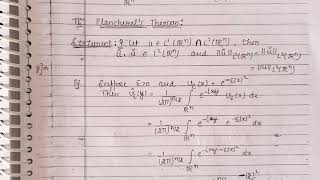 Th^m Plancherel's Theorem:
Statement: If Let u ∈ L¹(ℝⁿ) ∩ L²(ℝⁿ), then
û, ǔ ∈ L²(ℝⁿ) and ||û||_{L²(ℝⁿ)} = ||ǔ||_{L²(ℝⁿ)}
= ||u||_{L²(ℝⁿ)}
Pf Suppose ε>0 and v_ε(x) = e^{-ε|x|²}
Then v̂_ε(y) = 1/(2π)^{n/2} ∫_{ℝⁿ} e^{-ixy} v_ε(x) dx
= 1/(2π)^{n/2} ∫_{ℝⁿ} e^{-ixy} e^{-ε|x|²} dx
= 1/(2π)^{n/2} ∫_{ℝⁿ} e^{-ixy-ε|x|²} dx